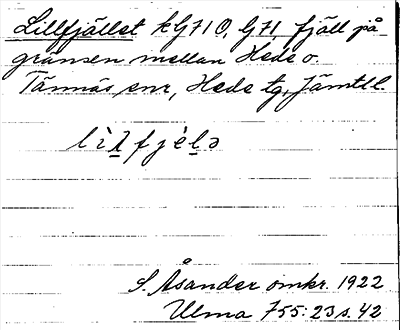 Lillfjället kG71 O, G71 fjäll på
gränsen mellan Hede o.
Tännäs snr, Hede tg, Jämtl l.
lìlfjélə
S. Åsander omkr. 1922
Ulma 755:23 s. 42